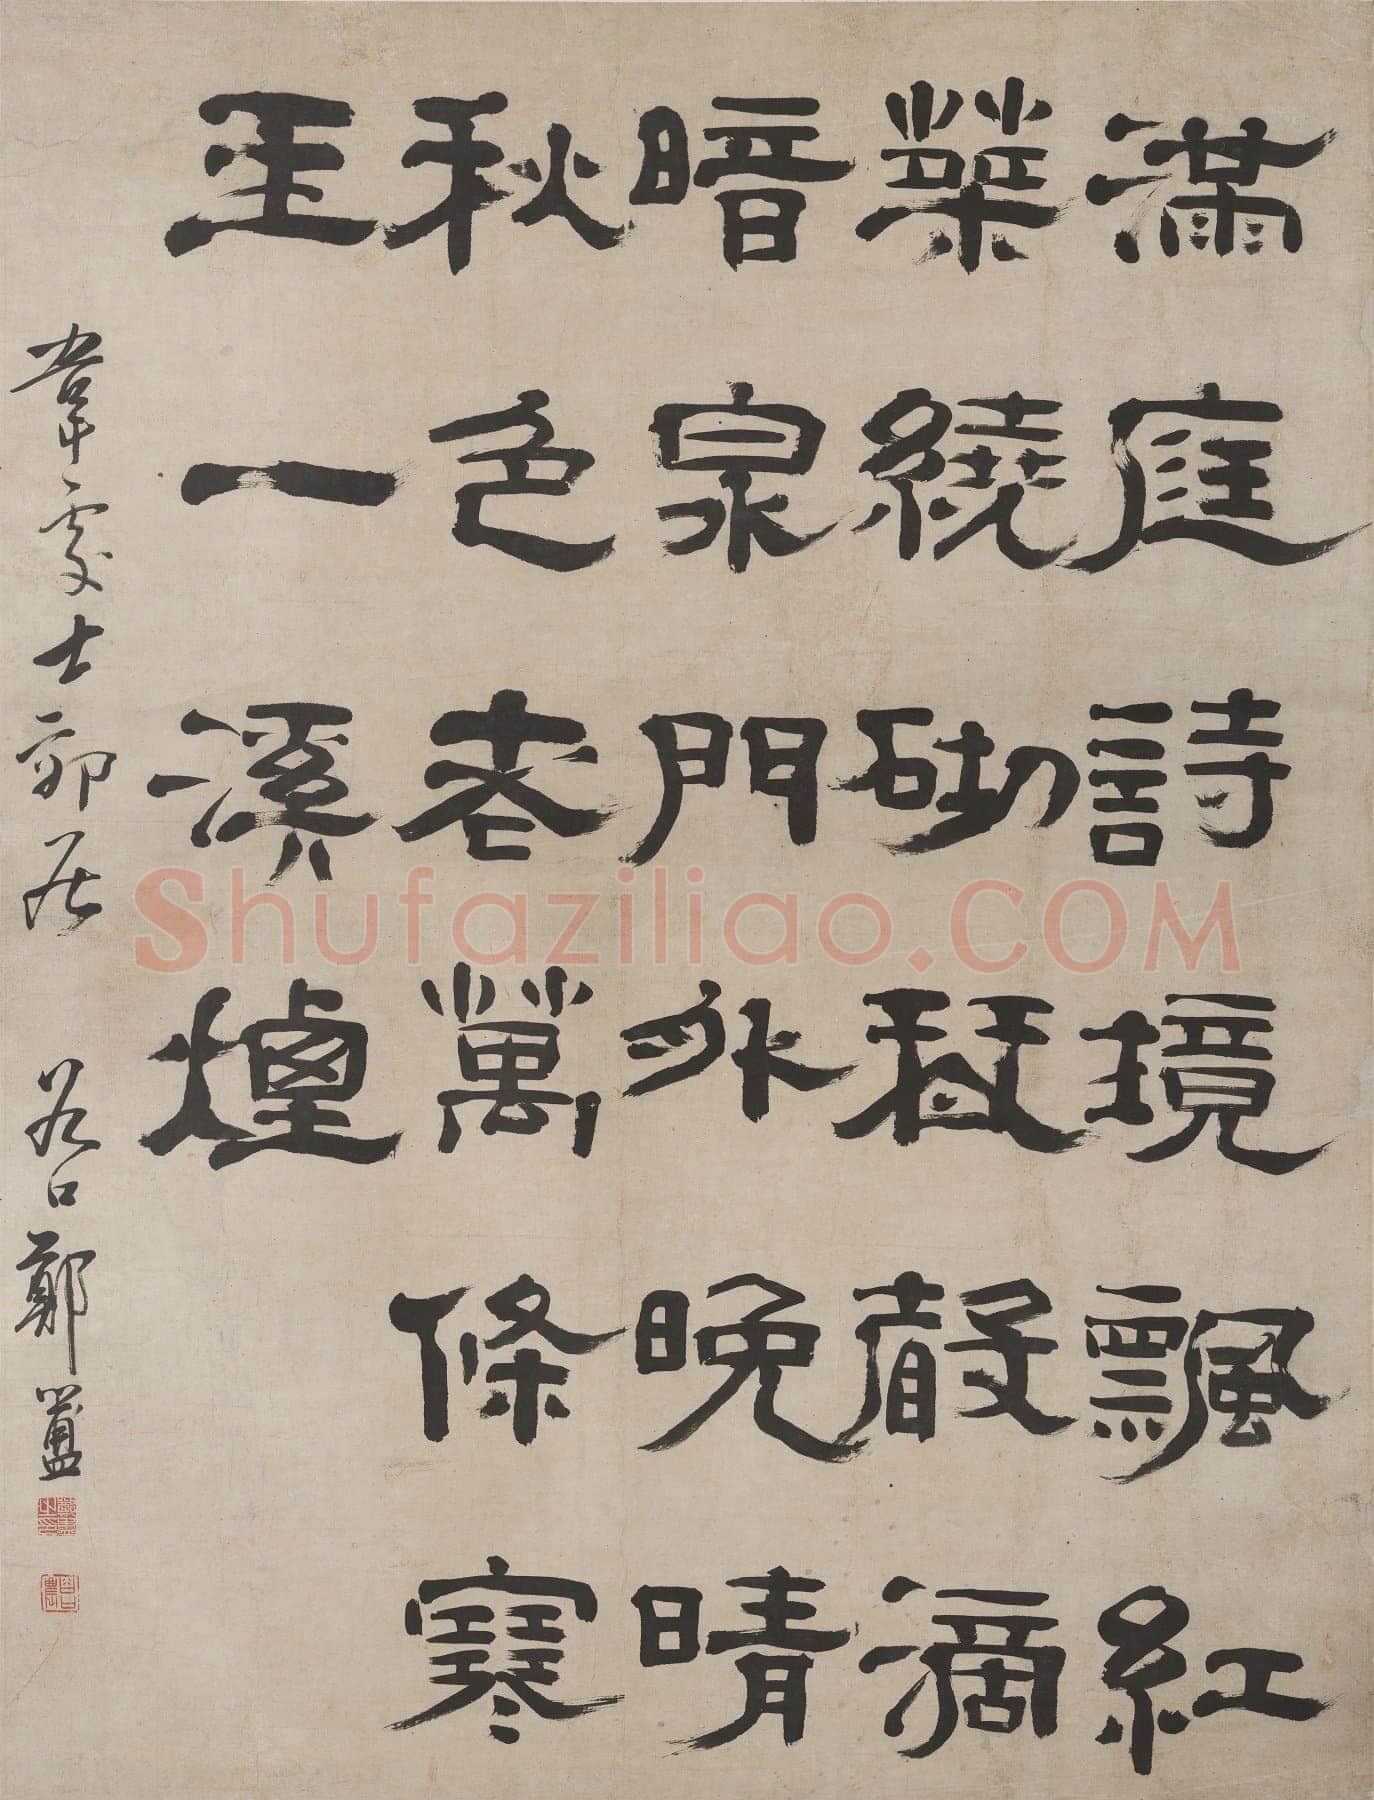 滿庭詩境飄紅
葉繞砌琴聲滴
暗泉門外晚晴
秋色老萬條寒
玉一溪煙
韋處士郊居 谷口鄭簠
Shufaziliao.COM